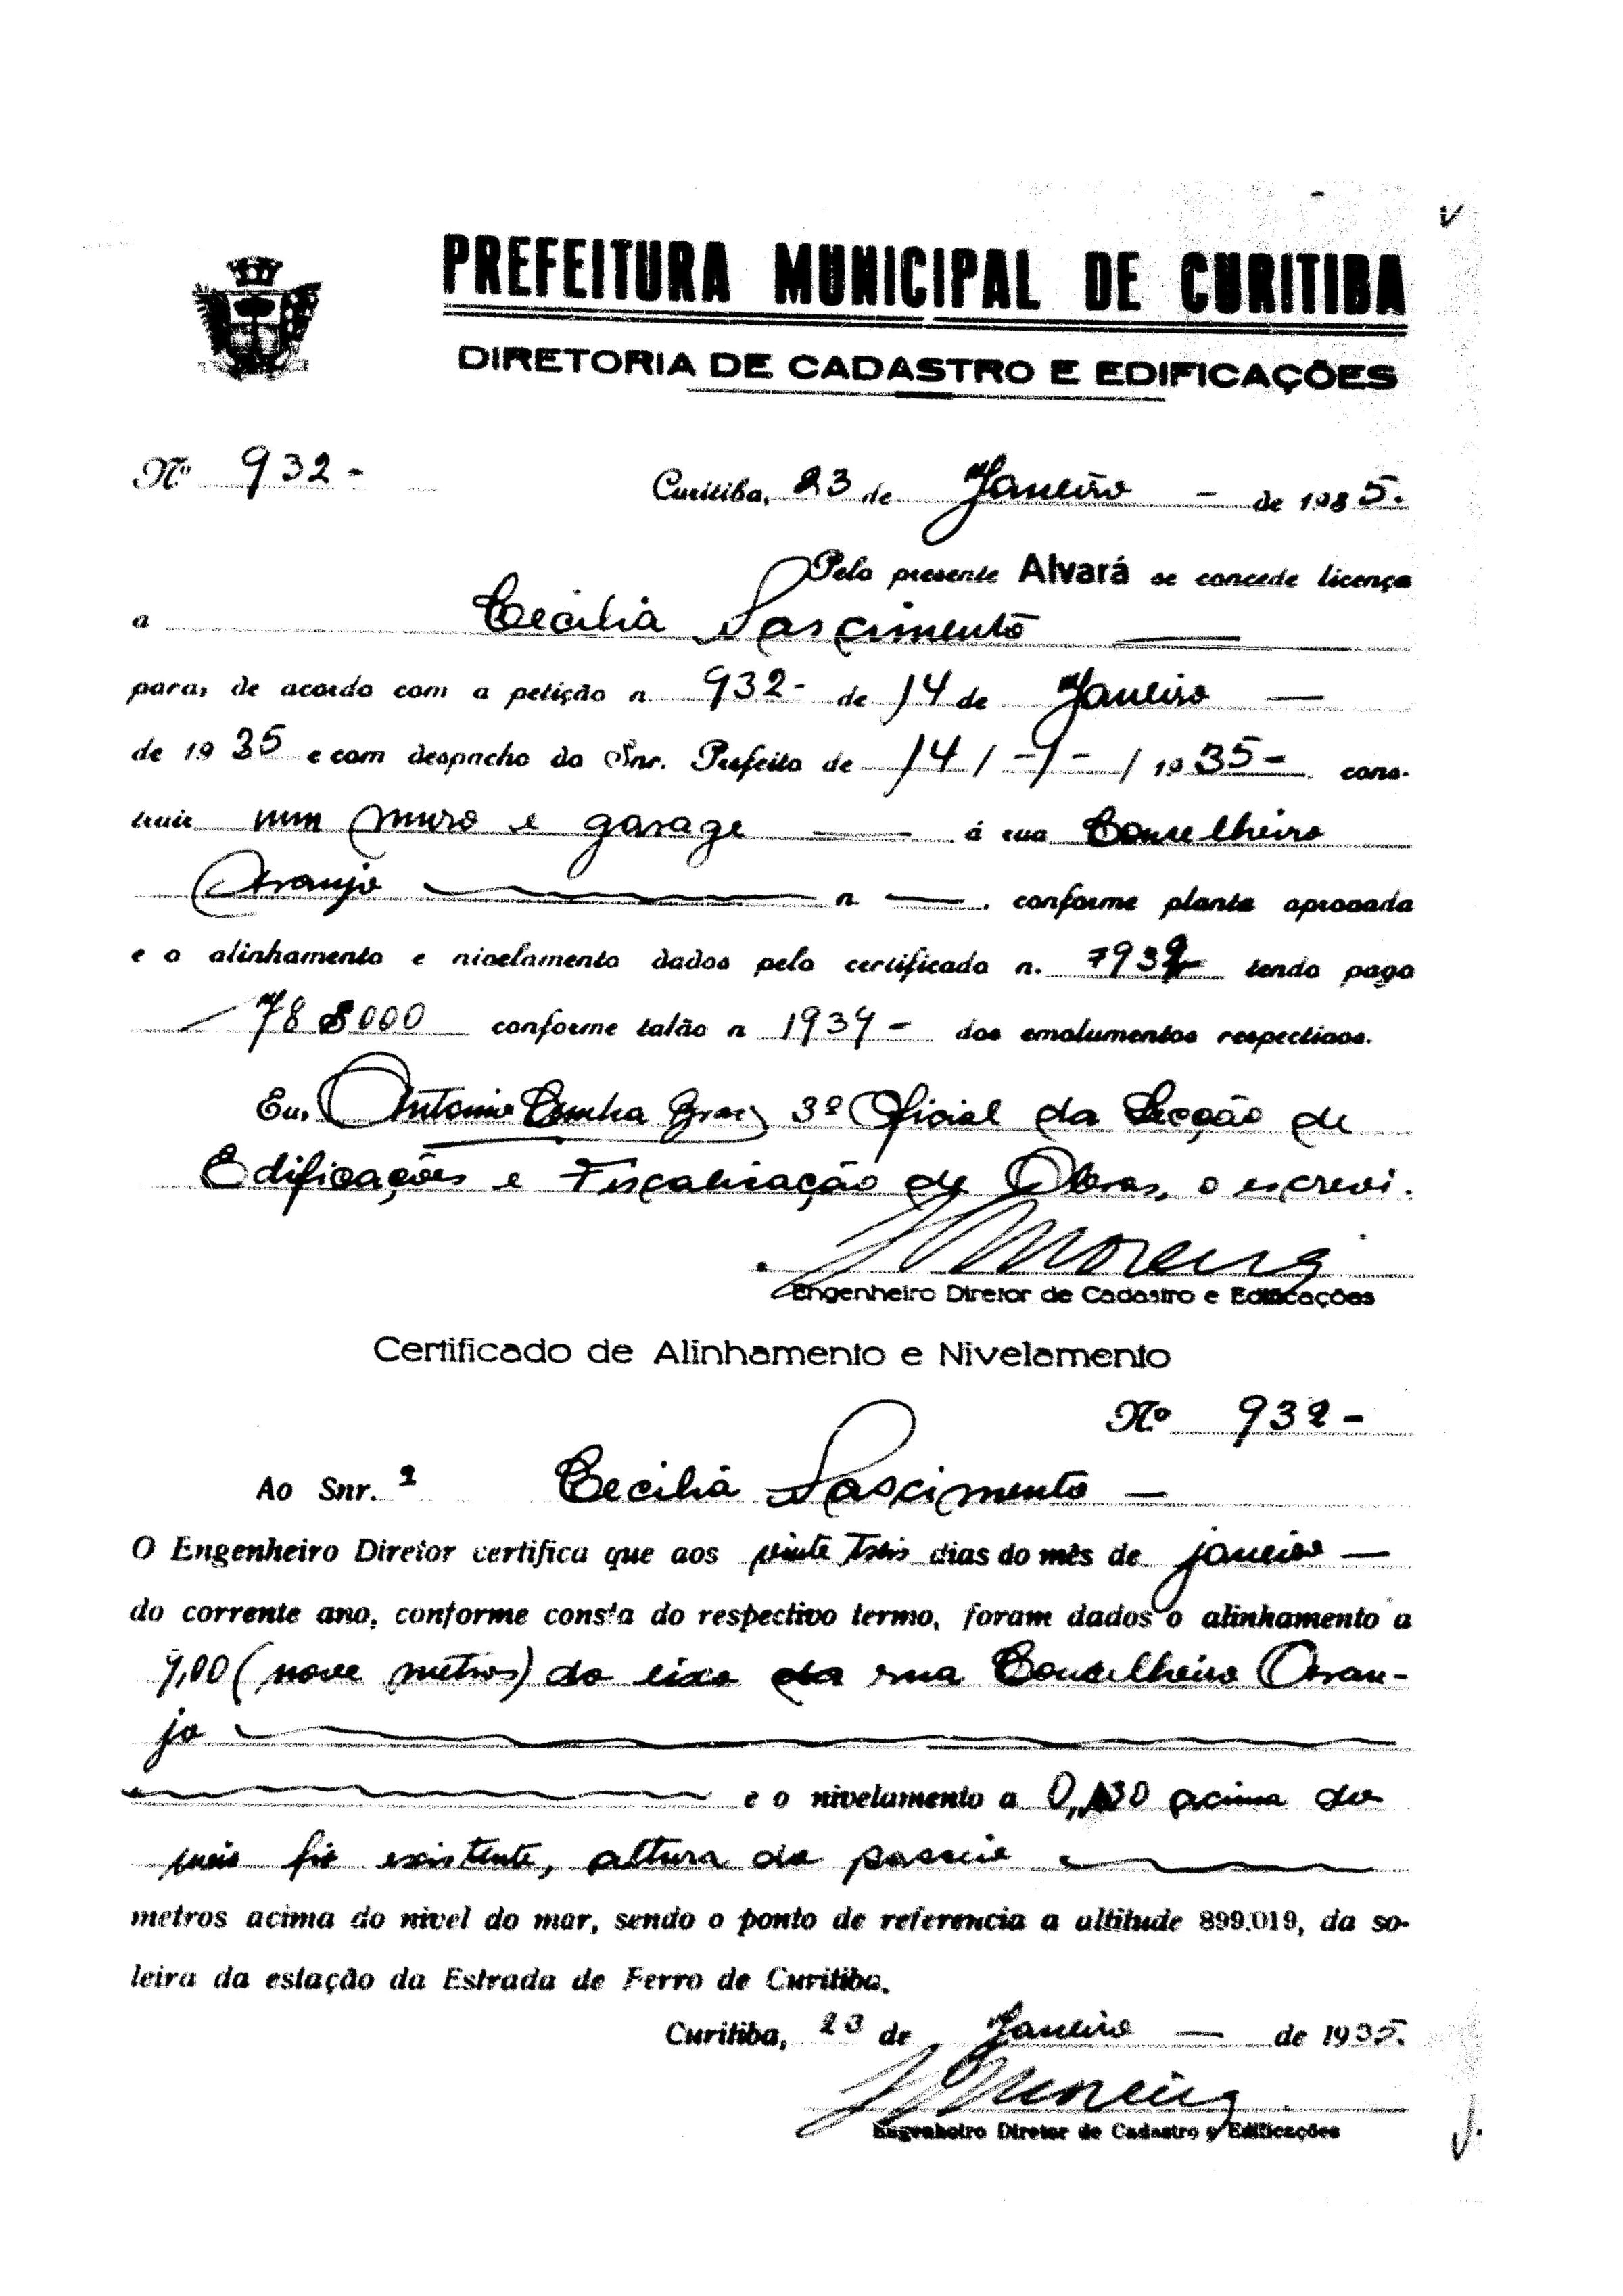 PREFEITURA MUNICIPAL DE CURITIBA
DIRETORIA DE CADASTRO E EDIFICAÇÕES
Nº 932-
Curitiba, 23 de Janeiro - de 1935.
Pelo presente Alvará se concede licença
a Cecilia Nascimento
para, de acordo com a petição n 932- de 14 de Janeiro —
de 1935 e com despacho do Snr. Prefeito de 14/-1-/1935- cons-
truir um muro e garage — á rua Conselheiro
Araujo n — . conforme planta aprovada
e o alinhamento e nivelamento dados pelo certificado n. 932 tendo pago
78$000 conforme talão n 1934- dos emolumentos respectivos.
Eu, Antonio Cunha 3º Oficial da Secção de
Edificações e Fiscalisação de Obras, o escrevi.
Moreira
Engenheiro Diretor de Cadastro e Edificações
Certificado de Alinhamento e Nivelamento
Nº 932-
Ao Snr. a Cecilia Nascimento —
O Engenheiro Diretor certifica que aos vinte tres dias do mês de janeiro —
do corrente ano, conforme consta do respectivo termo, foram dados o alinhamento a
9,00 (nove metros) do eixo da rua Conselheiro Arau-
jo
e o nivelamento a acima do
meio fio existente, altura do passeio
metros acima do nivel do mar, sendo o ponto de referencia a altitude 899.019, da so-
leira da estação da Estrada de Ferro de Curitiba.
Curitiba, 23 de Janeiro — de 1935.
Moreira
Engenheiro Diretor de Cadastro e Edificações